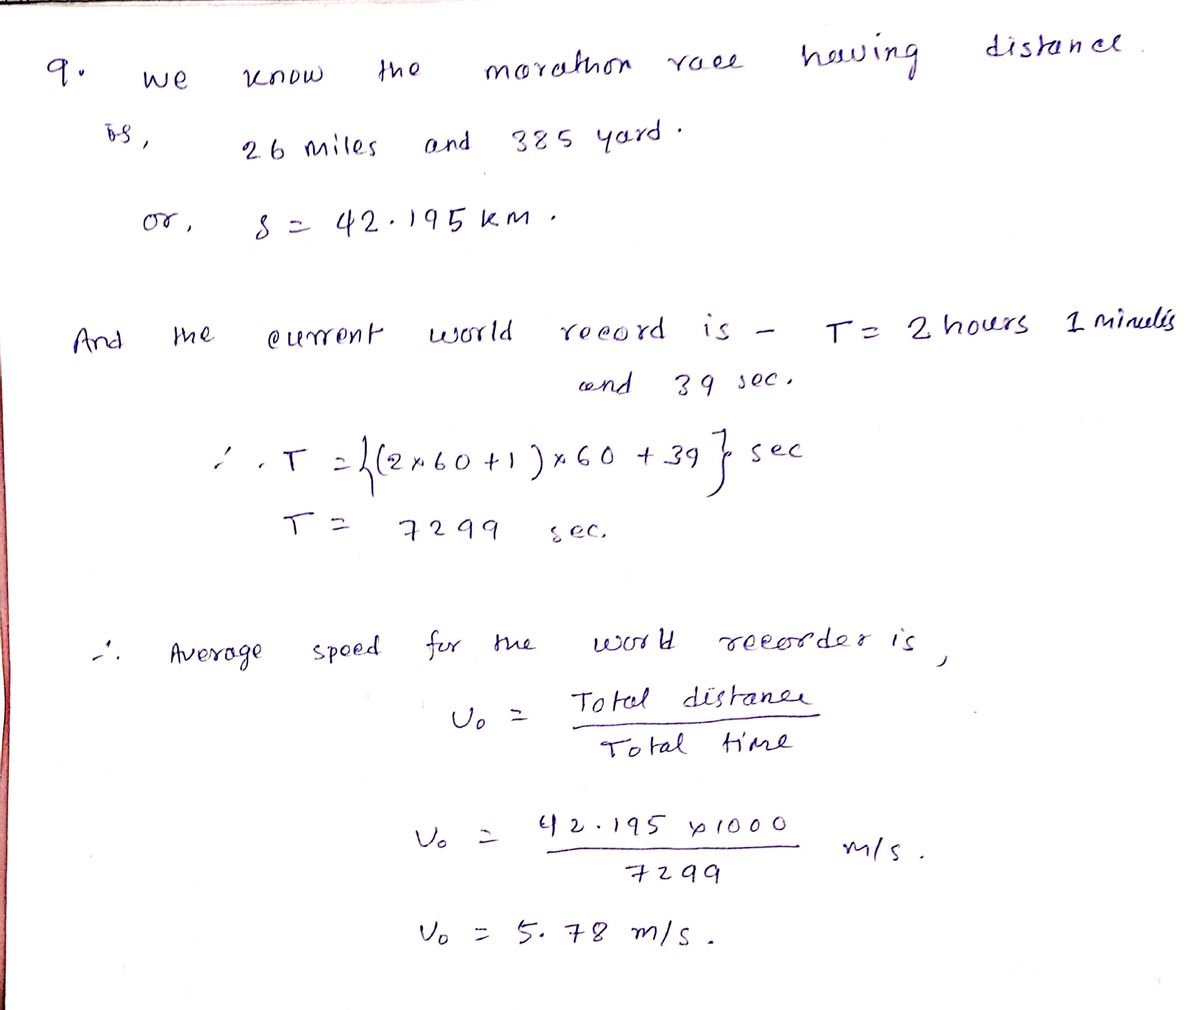 9. we know the marathon race having distance.
is, 26 miles and 385 yard.
or, s = 42.195 km.
And the current world record is - T = 2 hours 1 minutes
and 39 sec.
∴ T = {(2×60+1)×60 + 39} sec
T = 7299 sec.
∴ Average speed for the world recorder is,
v₀ = Total distance / Total time
v₀ = 42.195 × 1000 / 7299 m/s.
v₀ = 5.78 m/s.